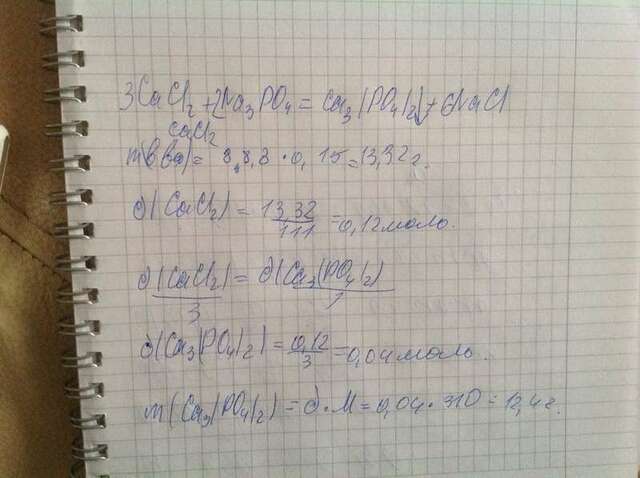 3CaCl2 + 2Na3PO4 = Ca3(PO4)2 + 6NaCl
CaCl2
m(в-ва) = 8,8,8 · 0,15 = 13,32г.
∂(CaCl2) = 13,32/111 = 0,12 моль.
∂(CaCl2)/3 = ∂(Ca3(PO4)2)/1
∂(Ca3(PO4)2) = 0,12/3 = 0,04 моль.
m(Ca3(PO4)2) = ∂·M = 0,04·310 = 12,4г.